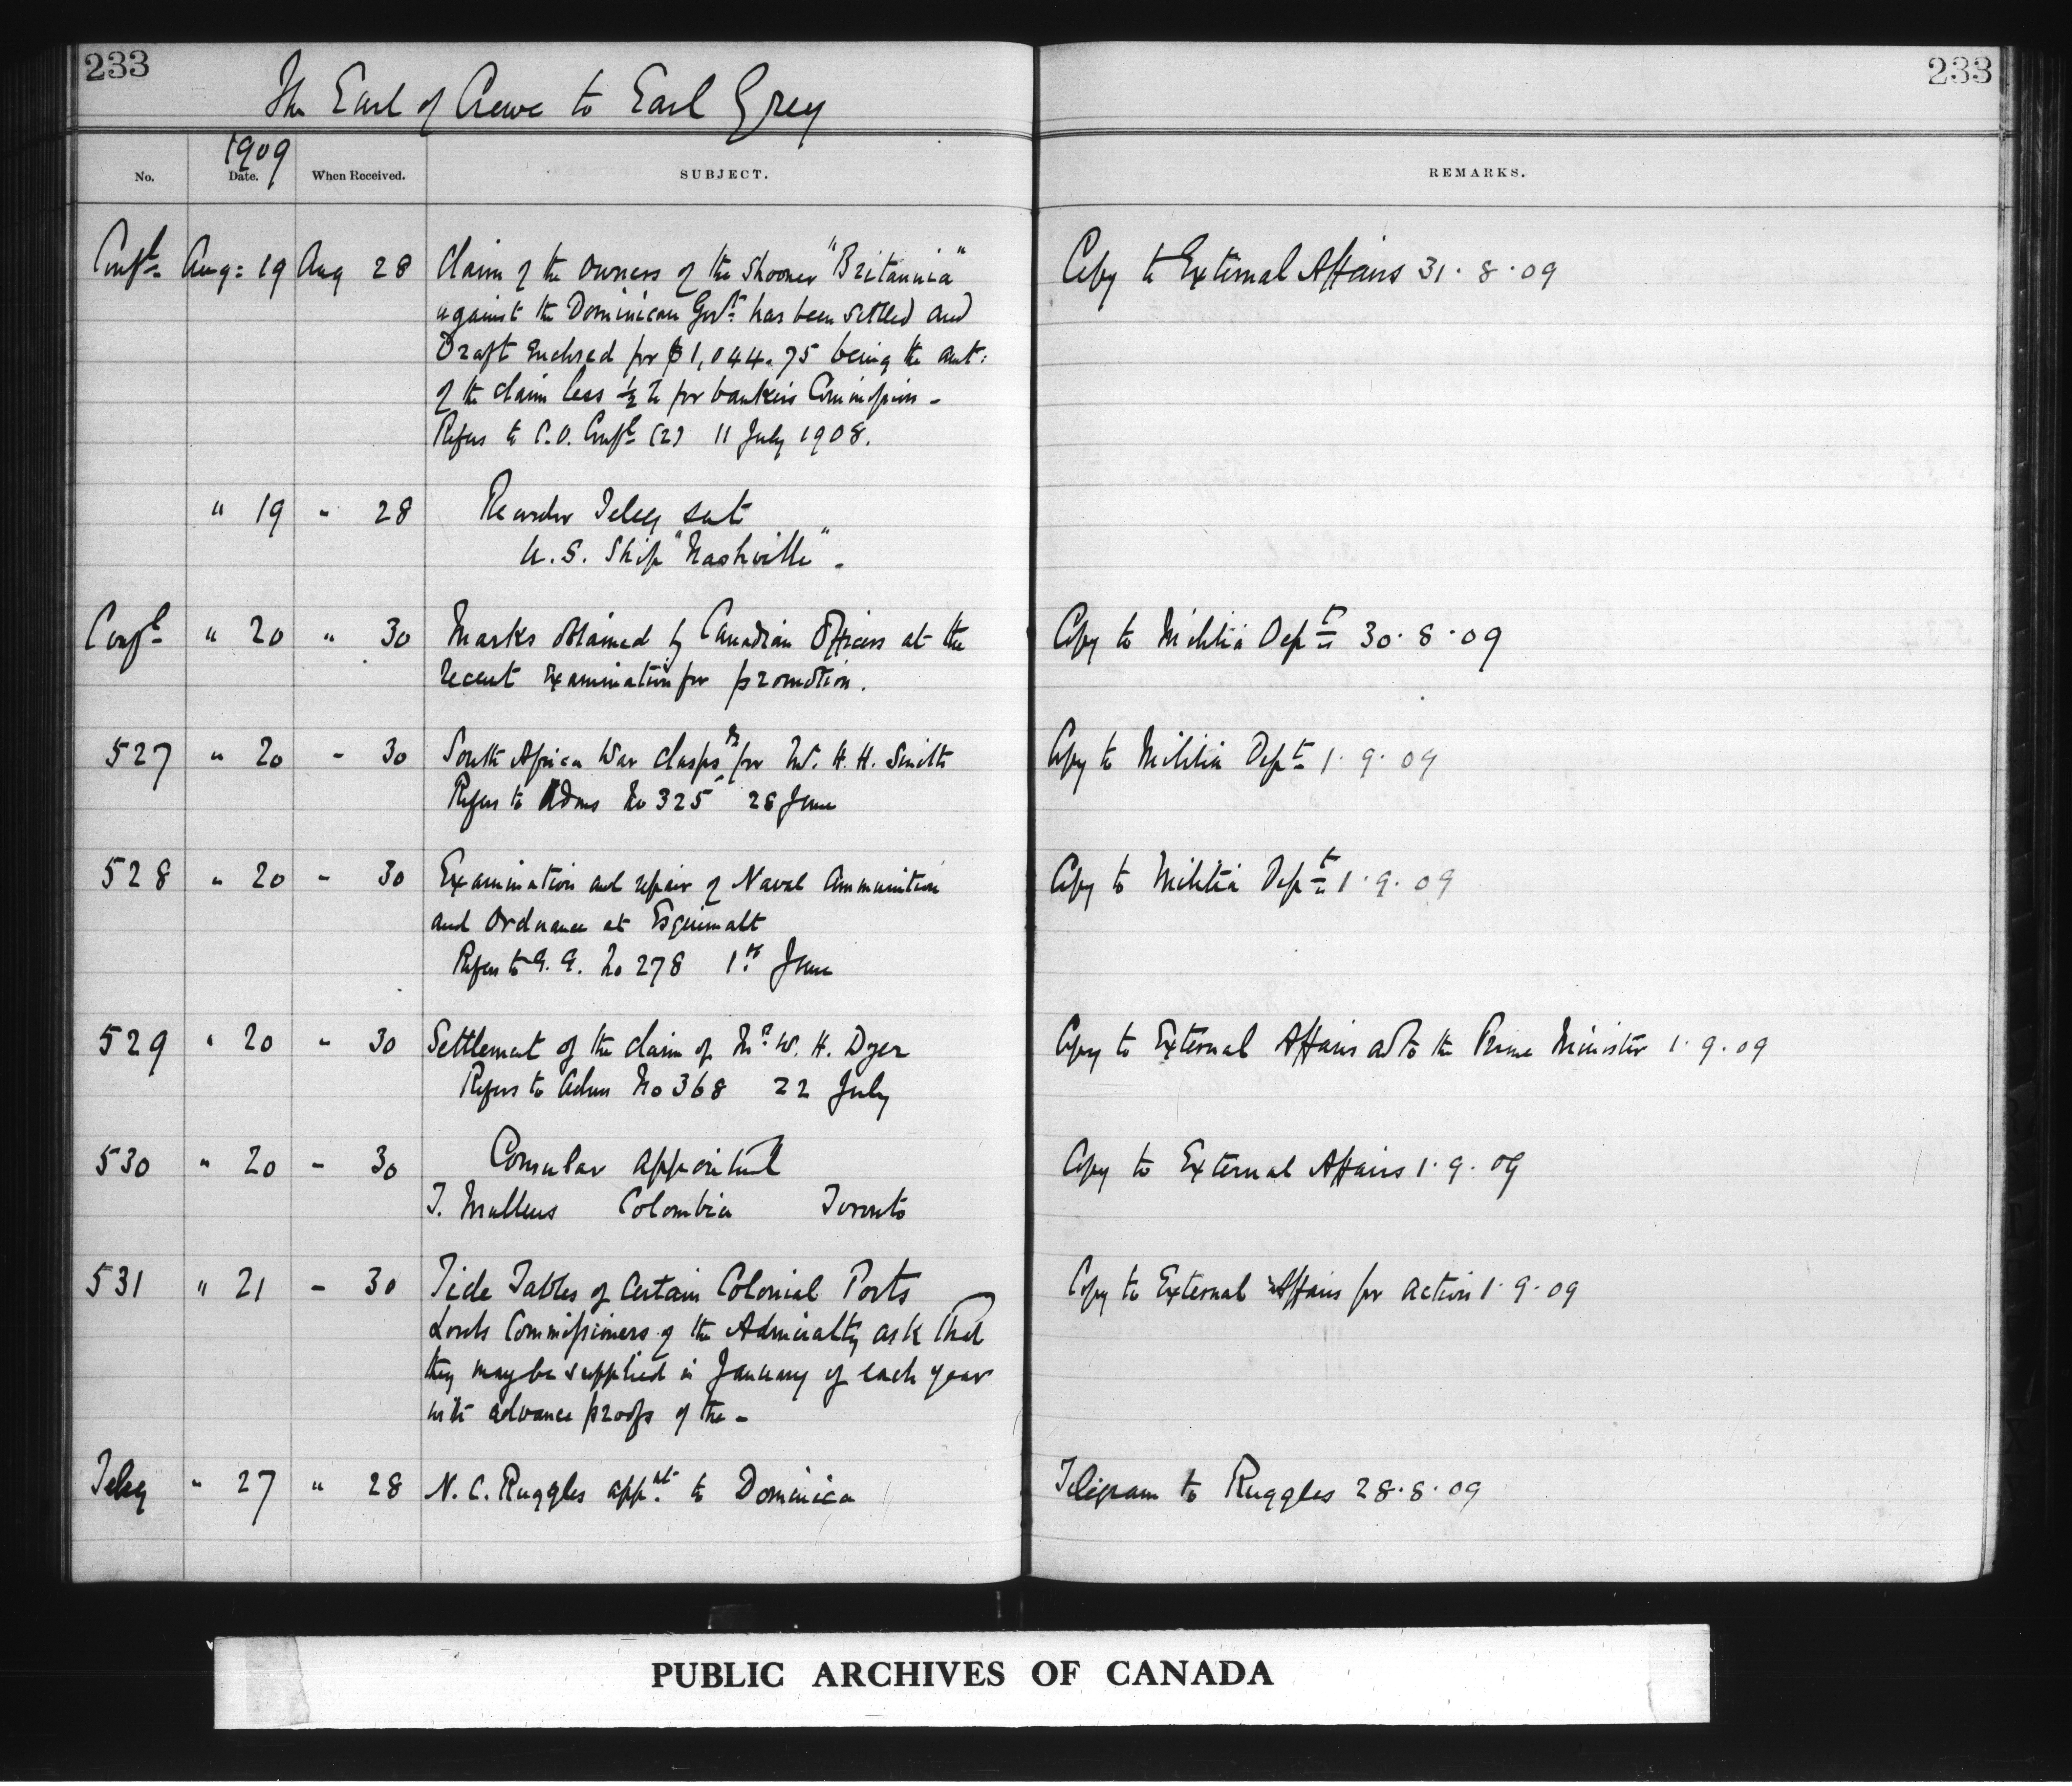 233
233
The Earl of Crewe to Earl Grey
1909
No. Date. When Received. SUBJECT. REMARKS.
Confl. Aug: 19 Aug 28 Claim of the owners of the Shooner "Britannia" Copy to External Affairs 31.8.09
against the Dominican Govt: has been settled and
Draft Enclosed for $1,044.75 being the amt:
of the claim less ½ % for bankers Commission -
Refers to C.O. Confl (2) 11 July 1908.
" 19 " 28 Recorder Teleg sent
U.S. Ship "Nashville" -
Confl " 20 " 30 Marks obtained by Canadian Officers at the Copy to Militia Dept 30.8.09
recent Examination for promotion.
527 " 20 " 30 South Africa War clasps for W. H. H. Smith Copy to Militia Dept 1.9.09
Refers to Adms No 325 28 June
528 " 20 " 30 Examination and repair of Naval Ammunition Copy to Militia Dept 1.9.09
and Ordnance at Esquimalt
Refers to G.G. No 278 1st June
529 " 20 " 30 Settlement of the claim of Mr. W. H. Dyer Copy to External Affairs ad to the Prime Minister 1.9.09
Refers to Adms No 368 22 July
530 " 20 " 30 Consular appointmt Copy to External Affairs 1.9.09
T. Mullens Colombia Toronto
531 " 21 " 30 Tide Tables of Certain Colonial Ports Copy to External Affairs for action 1.9.09
Lords Commissioners of the Admiralty ask that
they may be supplied in January of each year
with advance proofs of the -
Teleg " 27 " 28 N. C. Ruggles appt. to Dominica Telegram to Ruggles 28.8.09
PUBLIC ARCHIVES OF CANADA